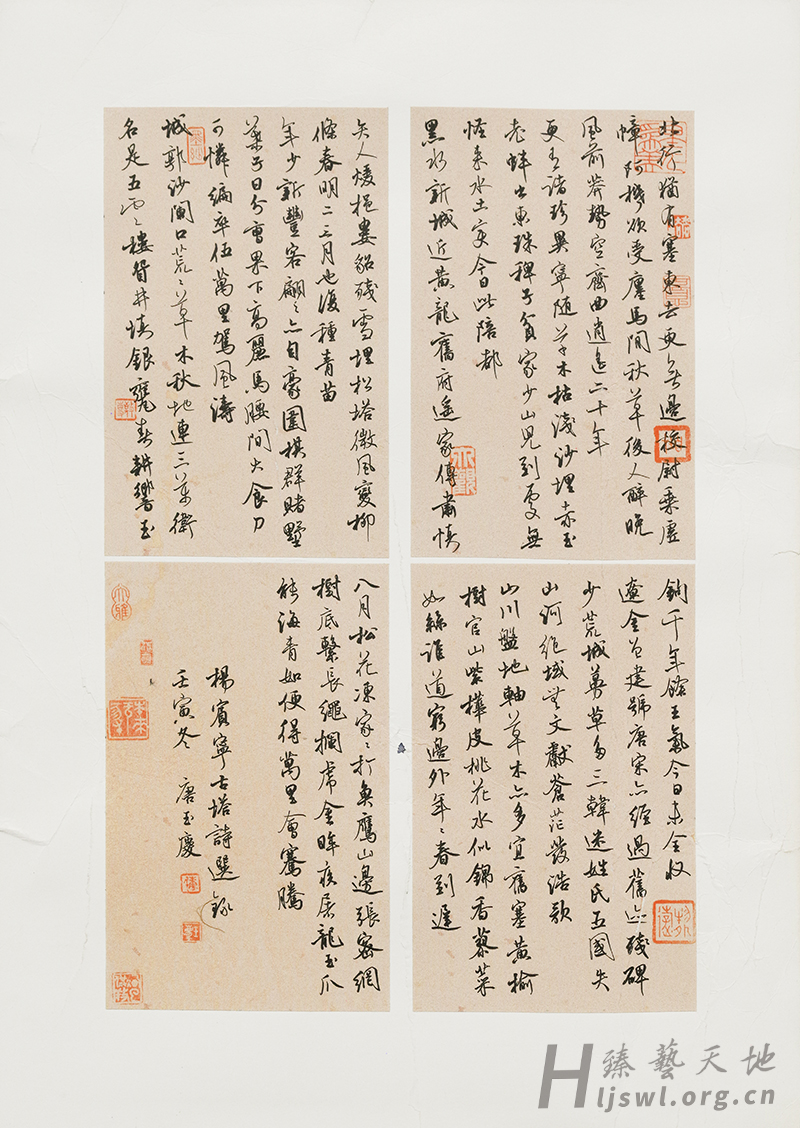 北行猶有塞東去更無邊校尉乘廬
幛阿機受廛馬閒秋草後人醉晚
風前莽勢空齊曲逍遥二十年
更有諸珍異寧随草木枯淺沙埋赤玉
老蚌出東珠稗子貧家少山兒到處無
怪来水土變今日此陪都
黑水新城近黄龍舊府遥家傳肅慎
矢人煖挹婁貂殘雪埋松塔微風變柳
條春明二三月也復種青苗
年少新豐客翩々亦自豪圍棋群賭墅
葉子日分曹果下高麗馬腰間大食刀
可憐編卒伍萬里駕風濤
城郭沙闌口荒々草木秋地連三萬衛
名是五雲樓眢井填銀甕春耕響玉
鉤千年餘王氣今日未全收
遼金曾建號唐宋亦經過舊迹殘碑
少荒城蔓草多三韓迷姓氏五國失
山河絶域無文獻蒼茫發浩歌
山川盤地軸草木亦多宜舊塞黄榆
樹官山紫樺皮桃花水似錦香藜菜
如絲誰道窮邊外年々春到遲
八月松花凍家々打魚鷹山邊張密網
樹底繫長繩擱虎金眸疾屠龍玉爪
能海青如便得萬里會騫騰
楊賓寧古塔詩選錄
壬寅冬 唐玉慶
臻藝天地
Hljswl.org.cn